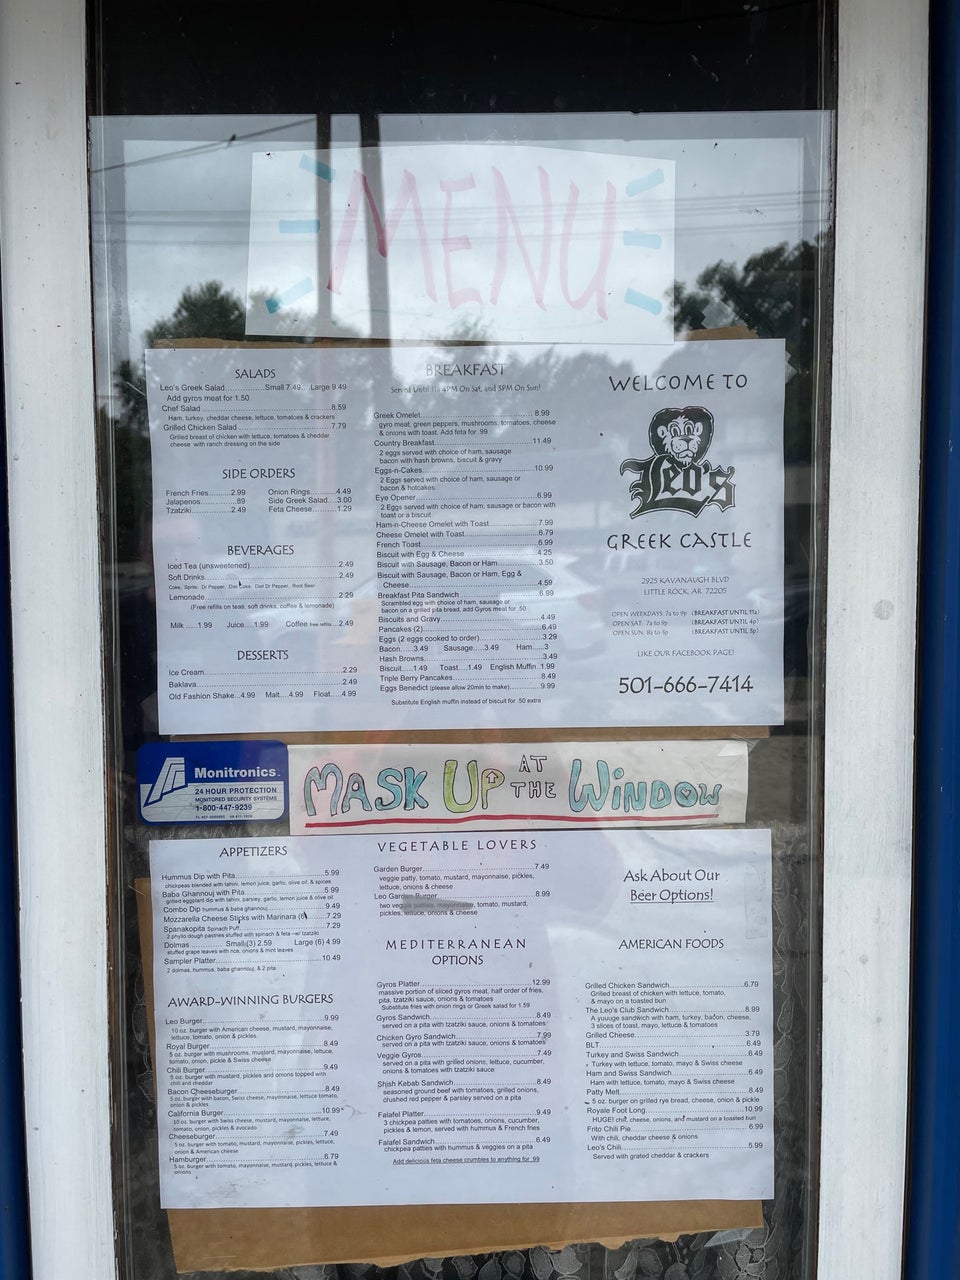 MENU
SALADS
Leo's Greek Salad.............Small 7.49....Large 9.49
Add gyros meat for 1.50
Chef Salad.............8.59
Ham, turkey, cheddar cheese, lettuce, tomatoes & crackers
Grilled Chicken Salad.............7.79
Grilled breast of chicken with lettuce, tomatoes & cheddar
cheese with ranch dressing on the side
SIDE ORDERS
French Fries.......2.99 Onion Rings.......4.49
Jalapenos.......89 Side Greek Salad....3.00
Tzatziki.......2.49 Feta Cheese.......1.29
BEVERAGES
Iced Tea (unsweetened).......2.49
Soft Drinks.......2.49
Coke, Sprite, Dr Pepper, Diet Coke, Diet Dr Pepper, Root Beer
Lemonade.......2.29
(Free refills on teas, soft drinks, coffee & lemonade)
Milk.....1.99 Juice....1.99 Coffee free refills...2.49
DESSERTS
Ice Cream.......2.29
Baklava.......2.49
Old Fashion Shake...4.99 Malt....4.99 Float....4.99
BREAKFAST
Served Until 11, 4PM On Sat. and 3PM On Sun!
Greek Omelet.......8.99
gyro meat, green peppers, mushrooms, tomatoes, cheese
& onions with toast. Add feta for .99
Country Breakfast.......11.49
2 eggs served with choice of ham, sausage
bacon with hash browns, biscuit & gravy
Eggs-n-Cakes.......10.99
2 Eggs served with choice of ham, sausage or
bacon & hotcakes
Eye Opener.......6.99
2 Eggs served with choice of ham, sausage or bacon with
toast or a biscuit
Ham-n-Cheese Omelet with Toast.......7.99
Cheese Omelet with Toast.......6.79
French Toast.......6.99
Biscuit with Egg & Cheese.......4.25
Biscuit with Sausage, Bacon or Ham.......3.50
Biscuit with Sausage, Bacon or Ham, Egg &
Cheese.......4.59
Breakfast Pita Sandwich.......6.99
Scrambled egg with choice of ham, sausage or
bacon on a grilled pita bread, add Gyros meat for .50
Biscuits and Gravy.......4.49
Pancakes (2).......6.49
Eggs (2 eggs cooked to order).......3.29
Bacon.....3.49 Sausage....3.49 Ham....3
Hash Browns.......3.49
Biscuit.....1.49 Toast....1.49 English Muffin..1.99
Triple Berry Pancakes.......8.49
Eggs Benedict (please allow 20min to make).......9.99
Substitute English muffin instead of biscuit for .50 extra
WELCOME TO
Leo's
GREEK CASTLE
2925 KAVANAUGH BLVD
LITTLE ROCK, AR. 72205
OPEN WEEKDAYS: 7a to 9p (BREAKFAST UNTIL 11a)
OPEN SAT: 7a to 9p (BREAKFAST UNTIL 4p)
OPEN SUN: 8a to 5p (BREAKFAST UNTIL 3p)
LIKE OUR FACEBOOK PAGE!
501-666-7414
Monitronics
24 HOUR PROTECTION
MONITORED SECURITY SYSTEMS
1-800-447-9239
MASK UP AT THE WINDOW
APPETIZERS
Hummus Dip with Pita.......5.99
chickpeas blended with tahini, lemon juice, garlic, olive oil, & spices
Baba Ghannouj with Pita.......5.99
grilled eggplant dip with tahini, parsley, garlic, lemon juice & olive oil
Combo Dip hummus & baba ghannouj.......9.49
Mozzarella Cheese Sticks with Marinara (6).......7.29
Spanakopita Spinach Puff.......7.29
2 phyllo dough pastries stuffed with spinach & feta -w/ tzatziki
Dolmas Small (3) 2.59 Large (6) 4.99
stuffed grape leaves with rice, onions & mint leaves
Sampler Platter.......10.49
2 dolmas, hummus, baba ghannouj, & 2 pita
AWARD-WINNING BURGERS
Leo Burger.......9.99
10 oz. burger with American cheese, mustard, mayonnaise,
lettuce, tomato, onion & pickles
Royal Burger.......8.49
5 oz. burger with mushrooms, mustard, mayonnaise, lettuce,
tomato, onion, pickle & Swiss cheese
Chili Burger.......9.49
5 oz. burger with mustard, pickles and onions topped with
chili and cheddar
Bacon Cheeseburger.......8.49
5 oz. burger with bacon, Swiss cheese, mayonnaise, lettuce tomato,
onion & pickles
California Burger.......10.99
10 oz. burger with Swiss cheese, mustard, mayonnaise, lettuce,
tomato, onion, pickles & avocado
Cheeseburger.......7.49
5 oz. burger with tomato, mustard, mayonnaise, pickles, lettuce,
onion & American cheese
Hamburger.......6.79
5 oz. burger with tomato, mayonnaise, mustard, pickles, lettuce &
onions
VEGETABLE LOVERS
Garden Burger.......7.49
veggie patty, tomato, mustard, mayonnaise, pickles,
lettuce, onions & cheese
Leo Garden Burger.......8.99
two veggie patties, mayonnaise, tomato, mustard,
pickles, lettuce, onions & cheese
MEDITERRANEAN
OPTIONS
Gyros Platter.......12.99
massive portion of sliced gyros meat, half order of fries,
pita, tzatziki sauce, onions & tomatoes
Substitute fries with onion rings or Greek salad for 1.59
Gyros Sandwich.......8.49
served on a pita with tzatziki sauce, onions & tomatoes
Chicken Gyro Sandwich.......7.99
served on a pita with tzatziki sauce, onions & tomatoes
Veggie Gyros.......7.49
served on a pita with grilled onions, lettuce, cucumber,
onions & tomatoes with tzatziki sauce
Shish Kebab Sandwich.......8.49
seasoned ground beef with tomatoes, grilled onions,
crushed red pepper & parsley served on a pita
Falafel Platter.......9.49
3 chickpea patties with tomatoes, onions, cucumber,
pickles & lemon, served with hummus & French fries
Falafel Sandwich.......6.49
chickpea patties with hummus & veggies on a pita
Add delicious feta cheese crumbles to anything for .99
Ask About Our
Beer Options!
AMERICAN FOODS
Grilled Chicken Sandwich.......6.79
Grilled breast of chicken with lettuce, tomato,
& mayo on a toasted bun
The Leo's Club Sandwich.......8.99
A yuuuge sandwich with ham, turkey, bacon, cheese,
3 slices of toast, mayo, lettuce & tomatoes
Grilled Cheese.......3.79
BLT.......6.49
Turkey and Swiss Sandwich.......6.49
Turkey with lettuce, tomato, mayo & Swiss cheese
Ham and Swiss Sandwich.......6.49
Ham with lettuce, tomato, mayo & Swiss cheese
Patty Melt.......8.49
5 oz. burger on grilled rye bread, cheese, onion & pickle
Royale Foot Long.......10.99
HUGE! chili, cheese, onions, and mustard on a toasted bun
Frito Chili Pie.......6.99
With chili, cheddar cheese & onions
Leo's Chili.......5.99
Served with grated cheddar & crackers